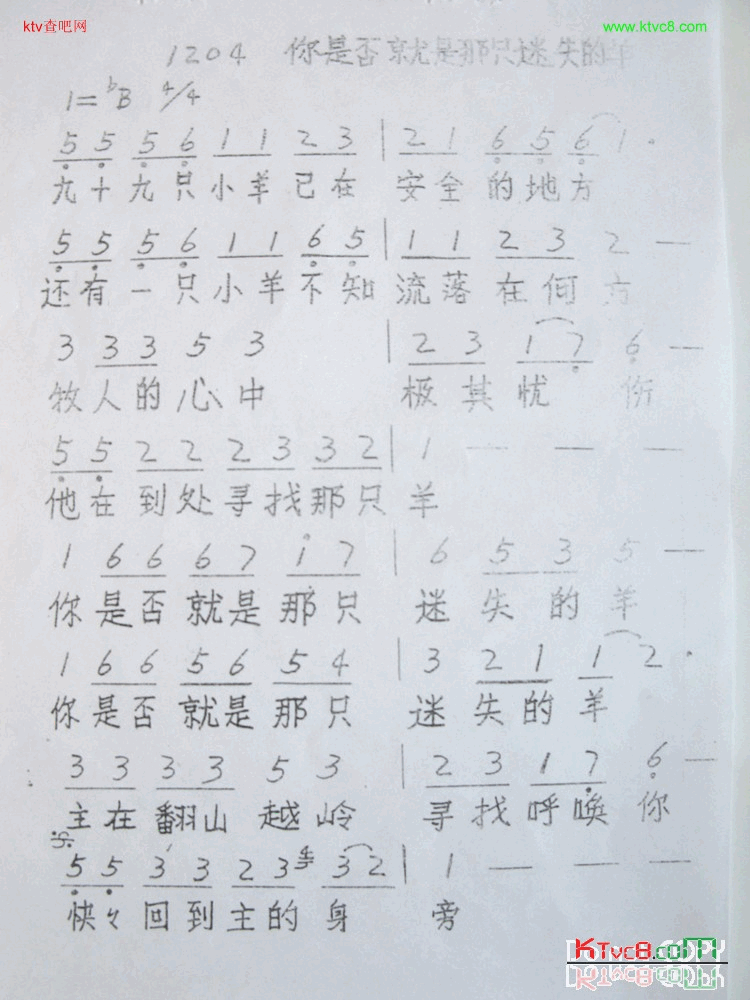 ktv查吧网
www.ktvc8.com
1204 你是否就是那只迷失的羊
1=♭B 4/4
5̣ 5̣ 5̣ 6̣ 1 1 2 3 | 2 1 6̣ 5̣ 6̣ 1·
九十九只小羊已在 安全的地方
5̣ 5̣ 5̣ 6̣ 1 1 6̣ 5̣ | 1 1 2 3 2 —
还有一只小羊不知 流落在何方
3 3 3 5 3 | 2 3 1 7̣ 6̣ —
牧人的心中 极其忧伤
5̣ 5̣ 2 2 2 3 3 2 | 1 — — —
他在到处寻找那只羊
1 6 6 6 7 1̇ 7 | 6 5 3 5 —
你是否就是那只 迷失的羊
1 6 6 5 6 5 4 | 3 2 1 1 2·
你是否就是那只 迷失的羊
3 3 3 3 5 3 | 2 3 1 7̣ 6̣ —
主在翻山越岭 寻找呼唤你
5̣ 5̣ 3 3 2 3 3 2 | 1 — — —
快々回到主的身 旁
KTvc8.com
DO NOT COPY